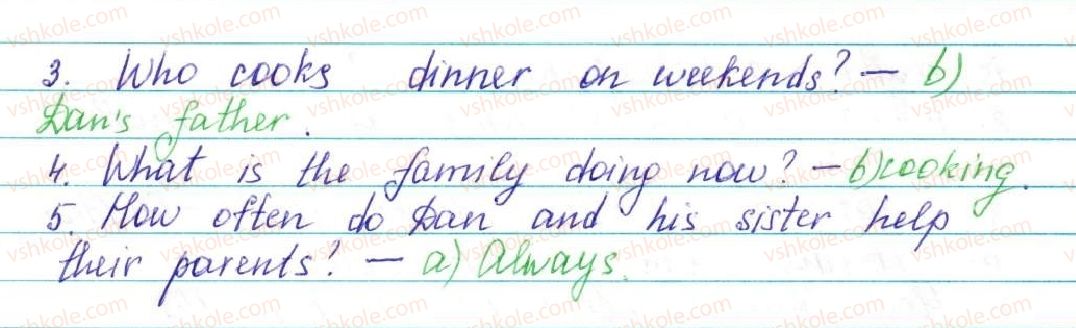 3. Who cooks dinner on weekends? — b)
Dan's father.
4. What is the family doing now? — b) cooking.
5. How often do Dan and his sister help
their parents? — a) Always.